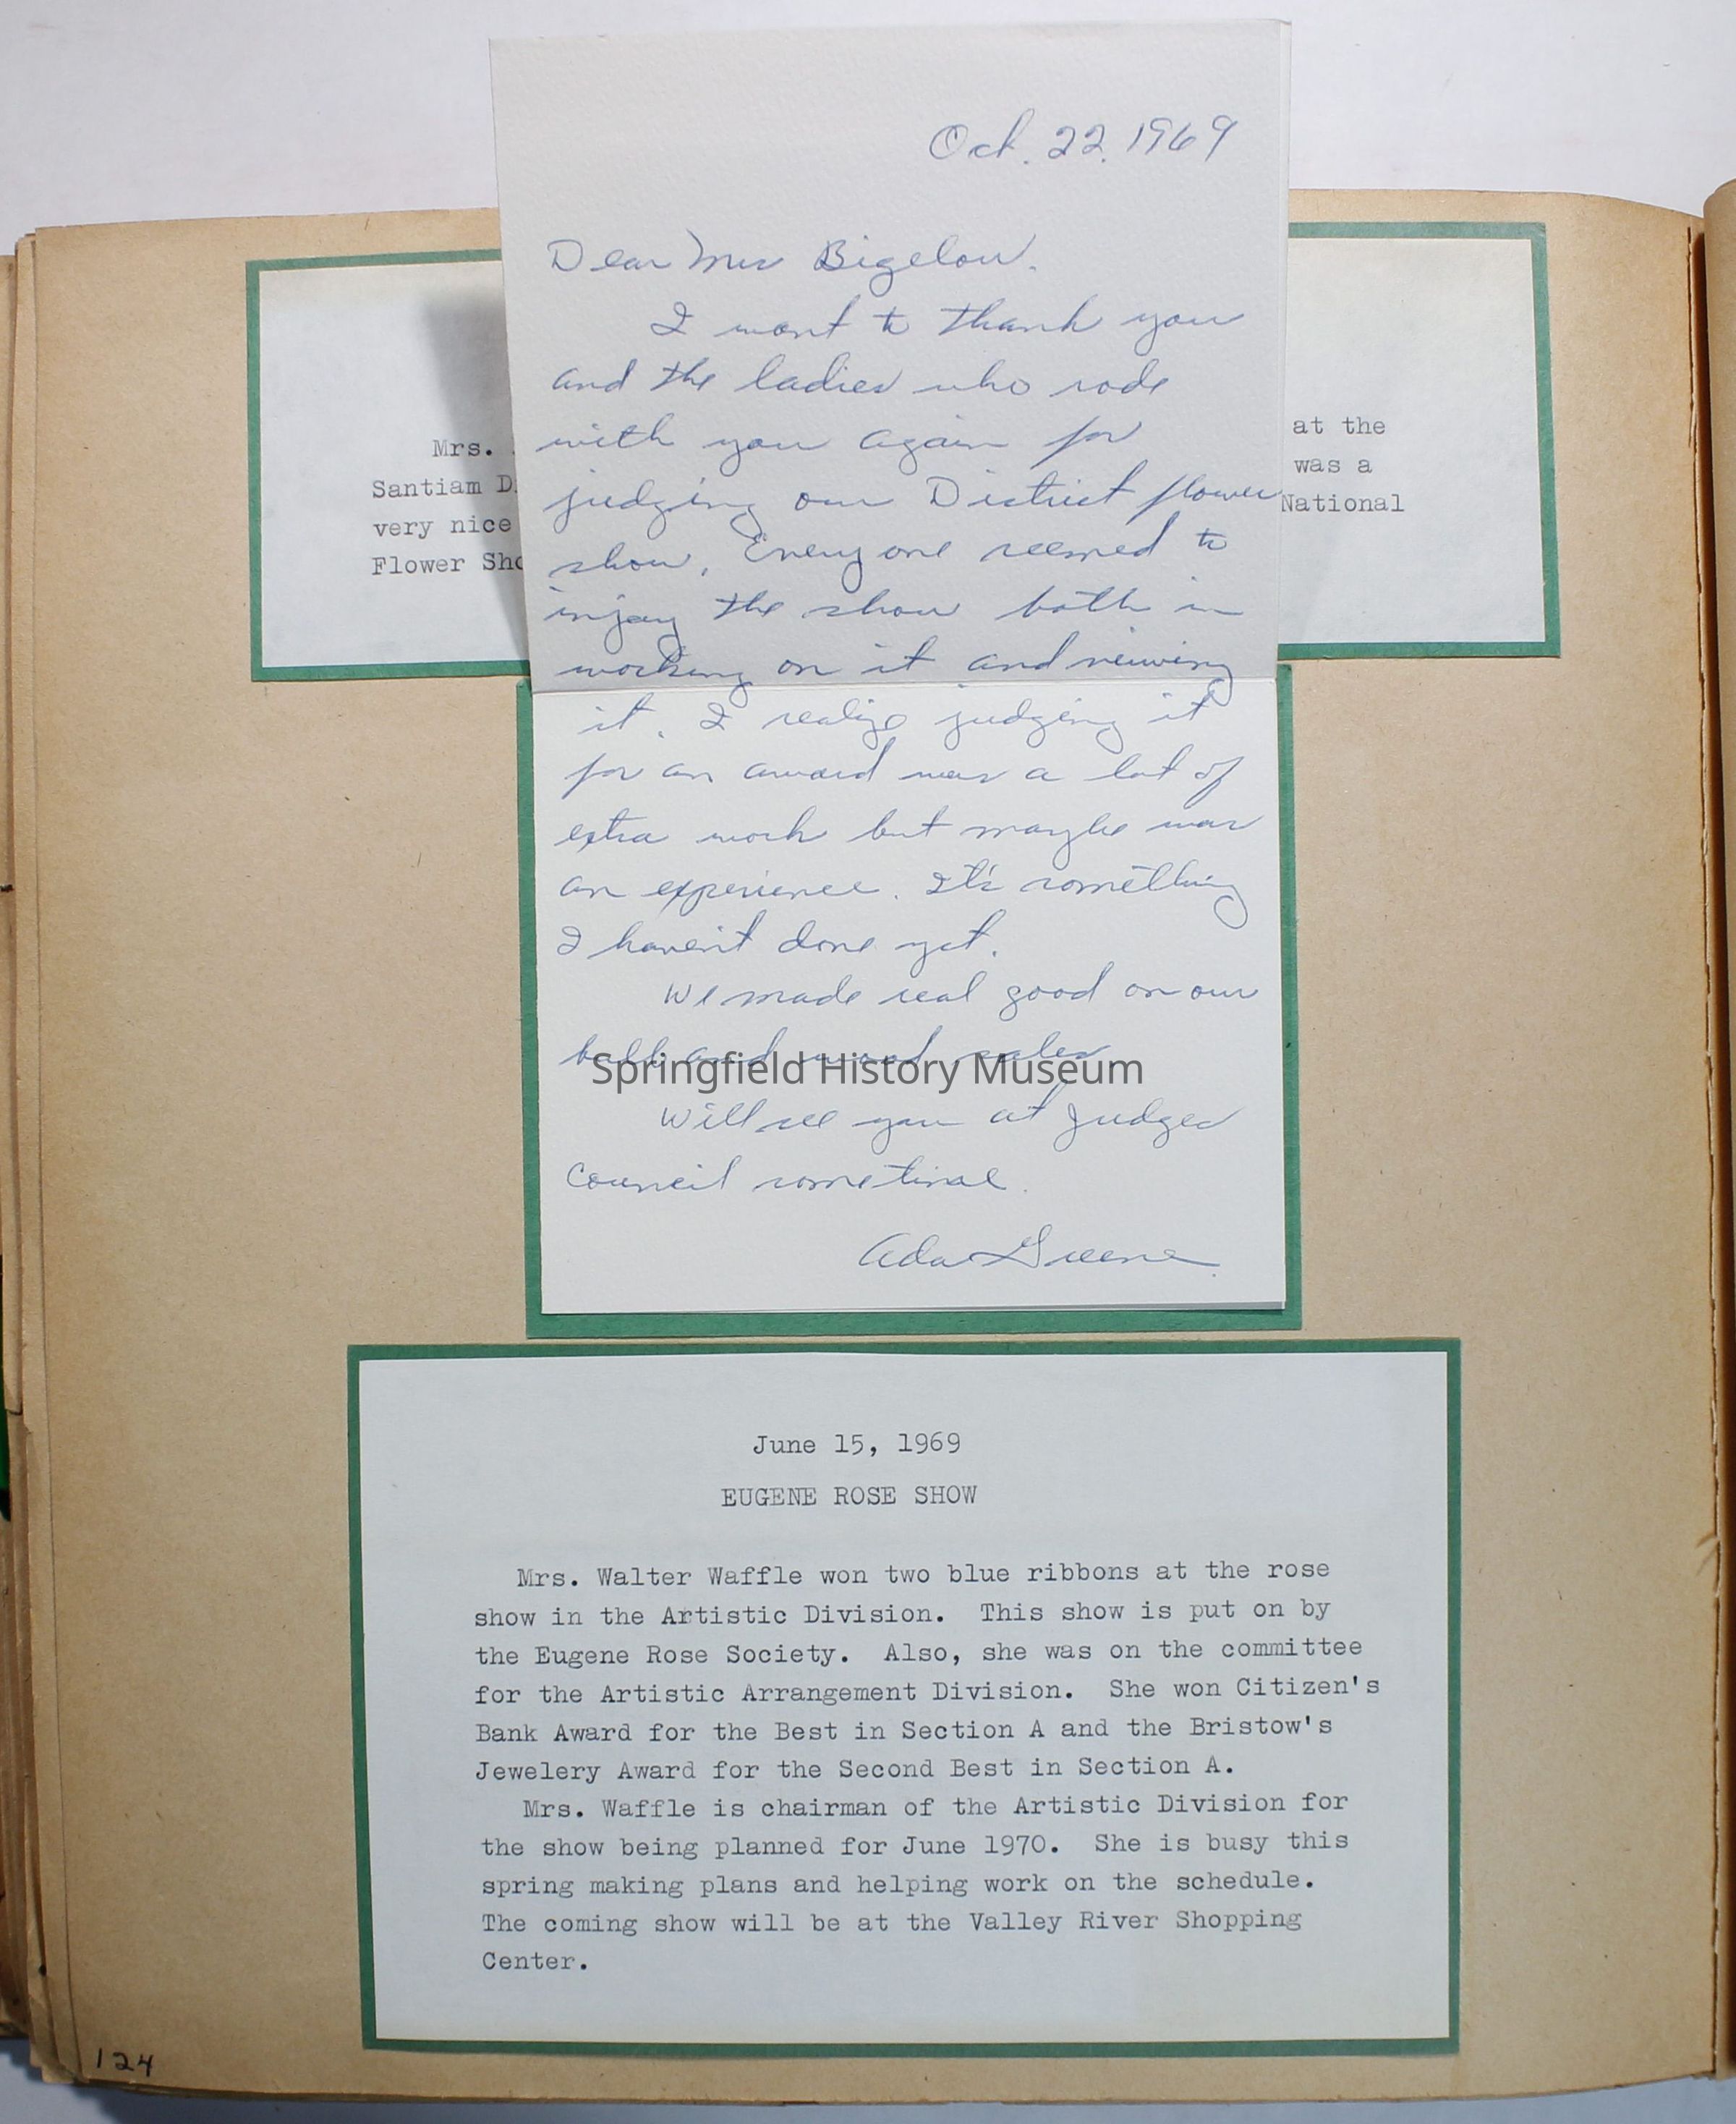 Oct. 22. 1969
Dear Mrs Bigelow.
I want to thank you
and the ladies who rode
with you again for
judging our District flower
show. Every one seemed to
injoy the show both in
working on it and viewing
it. I realize judging it
for an award was a lot of
extra work but maybe was
an experience. It's something
I haven't done yet.
We made real good on our
bulb and wood sales
Springfield History Museum
Will see you at Judges
Council sometime.
Ada Greene.
Mrs.
at the
Santiam D
was a
very nice
National
Flower Sho
June 15, 1969
EUGENE ROSE SHOW
Mrs. Walter Waffle won two blue ribbons at the rose
show in the Artistic Division. This show is put on by
the Eugene Rose Society. Also, she was on the committee
for the Artistic Arrangement Division. She won Citizen's
Bank Award for the Best in Section A and the Bristow's
Jewelery Award for the Second Best in Section A.
Mrs. Waffle is chairman of the Artistic Division for
the show being planned for June 1970. She is busy this
spring making plans and helping work on the schedule.
The coming show will be at the Valley River Shopping
Center.
124